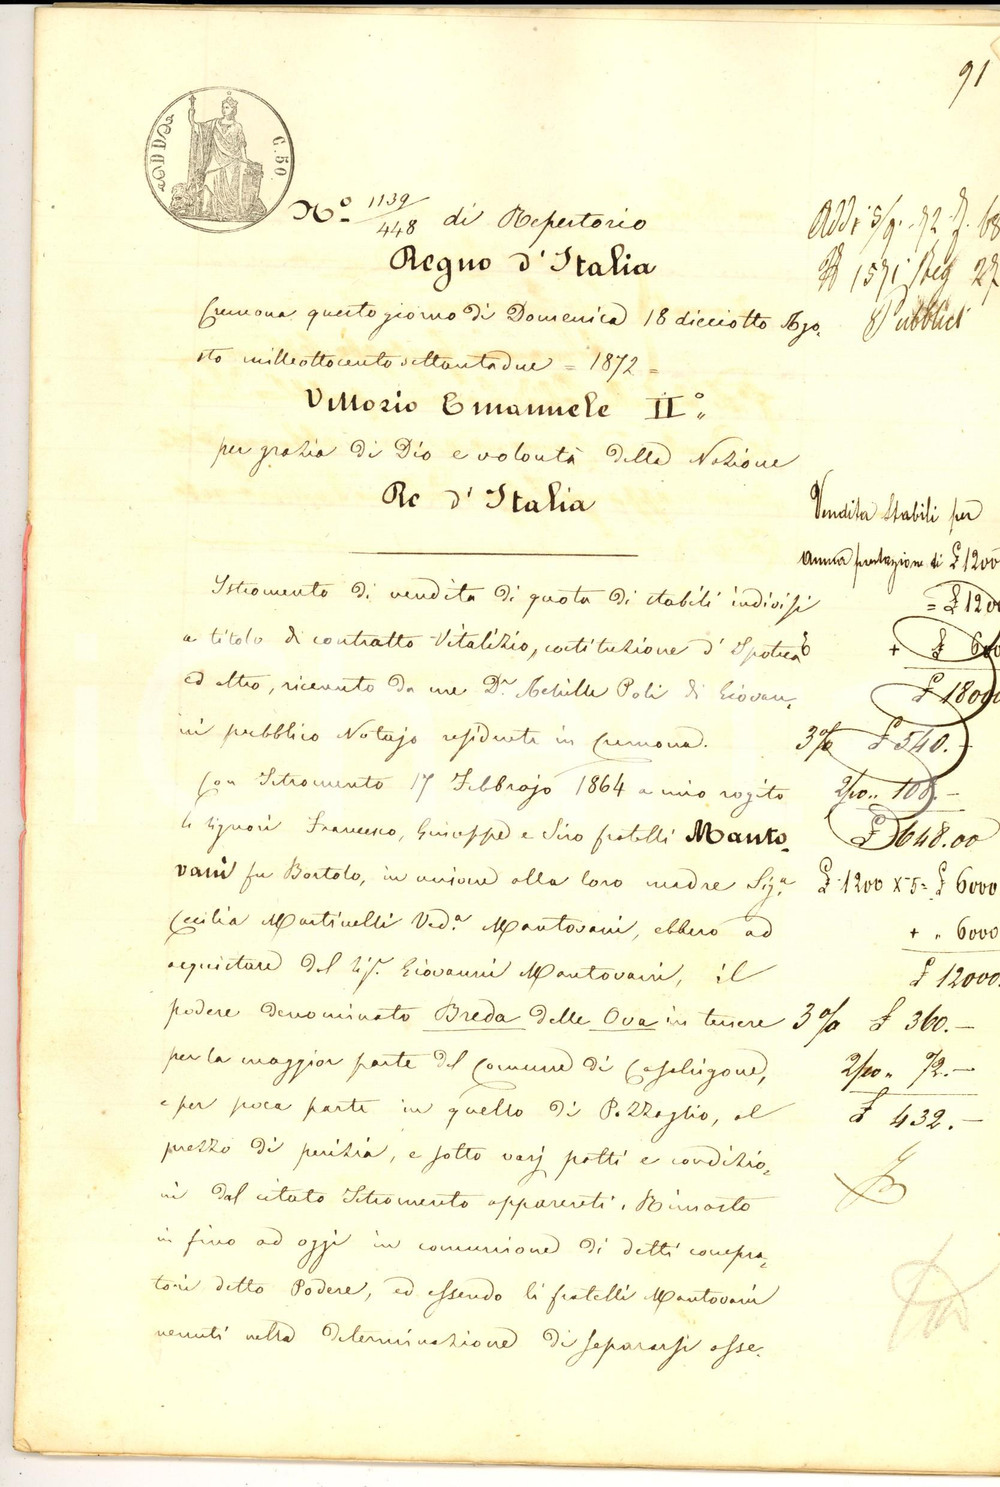 91
C. 50
N.º 1139/448 di Repertorio
Regno d'Italia
Cremona questo giorno di Domenica 18 dicciotto Ago,
sto mille ottocento settantadue = 1872 =
Vittorio Emanuele II.º
per grazia di Dio e volontà della Nazione
Re d'Italia
Istromento di vendita di quota di stabili indivisi
a titolo di contratto Vitalizio, costituzione d'Ipoteca
ed altro, ricevuto da me D.r Achille Poli di Giovan,
ni pubblico Notajo residente in Cremona.
Con Istromento 17 Febbrajo 1864 a mio rogito
li Signori Francesco, Giuseppe e Siro fratelli Manto,
vani fu Bortolo, in unione alla loro madre Sig.a
Cecilia Martinelli Ved.a Mantovani, ebbero ad
acquistare del Sig.r Giovanni Mantovani, il
podere denominato Breda delle Ova in tenere
per la maggior parte del Comune di Casalsigone,
e per poca parte in quello di Pozzaglio, al
prezzo di perizia, e sotto varj patti e condizio,
ni dal citato Istromento apparenti. Rimasto
in fino ad oggi in comunione di detti compra,
tori detto Podere, ed essendo li fratelli Mantovani
venuti nella determinazione di separarsi asse,
Pubblici
Vendita Stabili per
annua prestazione di £ 1200
= £ 1200
+ £ 600
£ 1800
3% £ 540.-
2/10.. 108 -
£ 648.00
£ 1200 x 5 = £ 6000
+ " 6000
£ 12000.
3% £ 360.-
2/10.. 72.-
£ 432.-